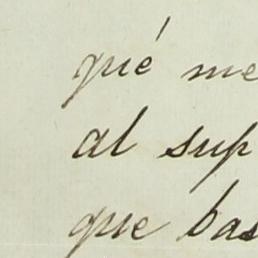 qué me
al sup
que bas